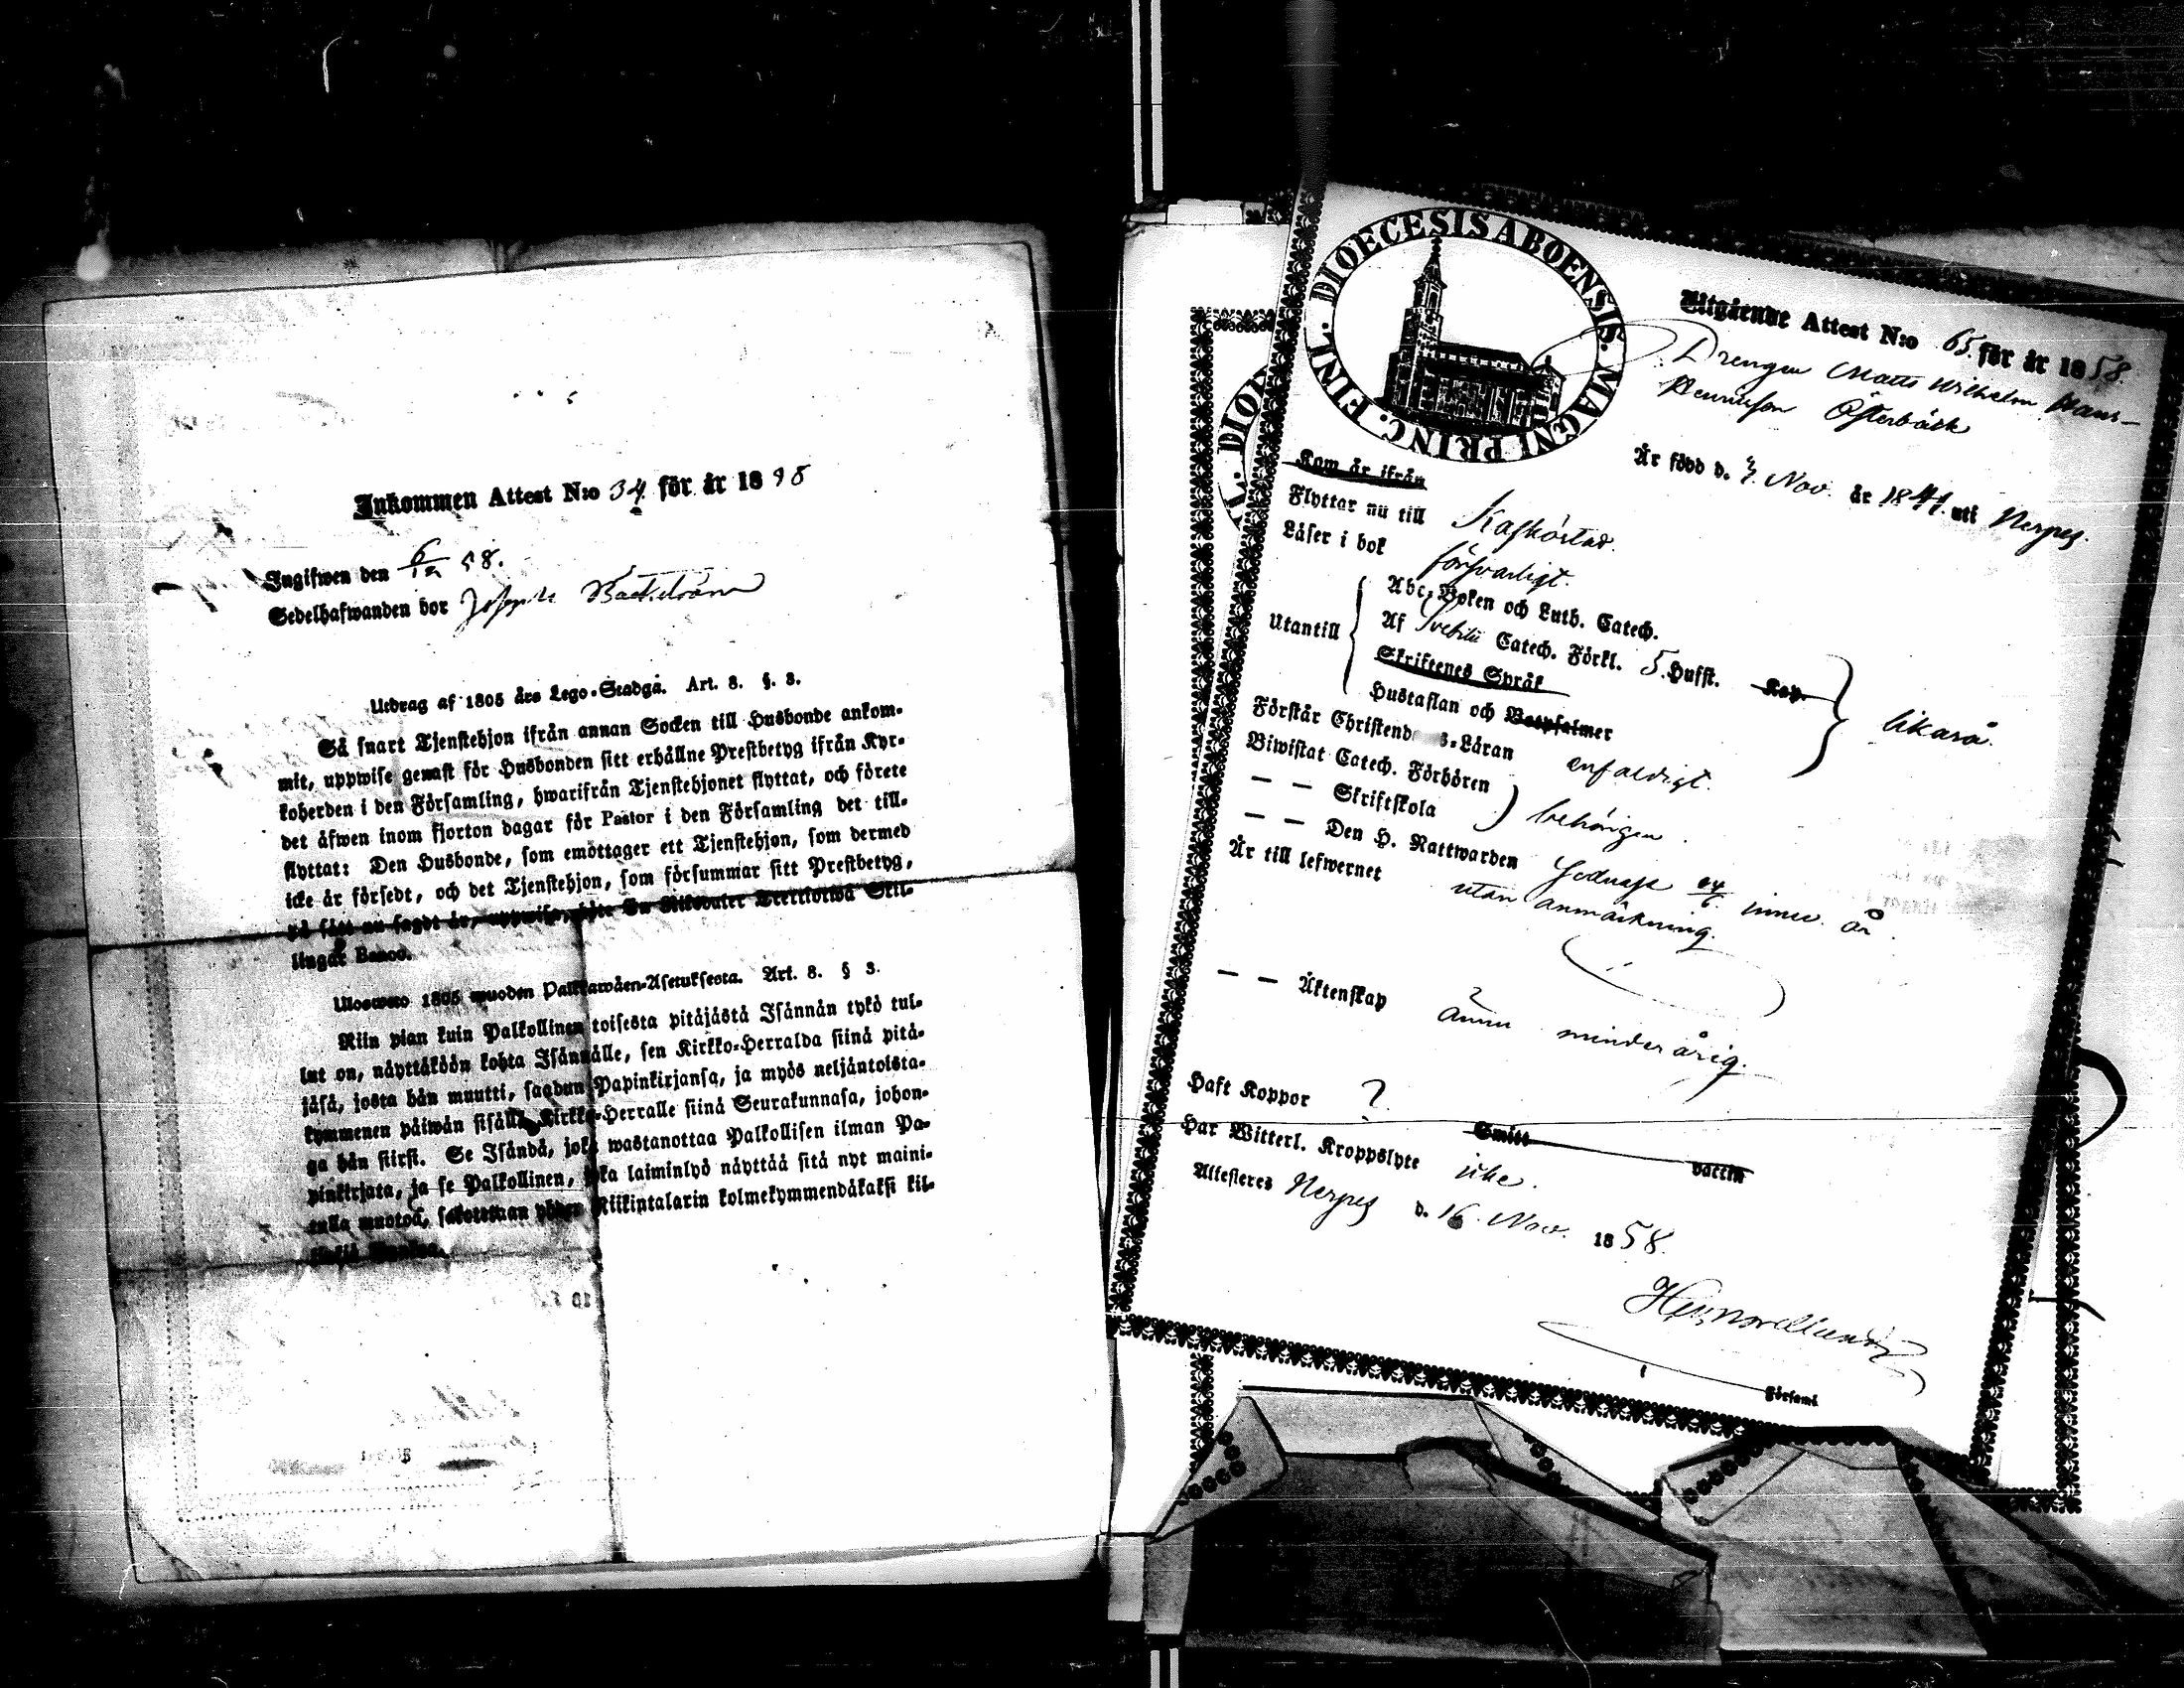 Inkommen Attest N:o 34 för år 1898
Ingifwen den 6/12 58.
Sedelhafwanden bor Joseph Bäckström
Utdrag af 1805 års Lego-Stadga. Art. 8. §. 3.
Så snart Tjenstehjon ifrån annan Socken till Husbonde ankom-
mit, uppwise genast för Husbonden sitt erhållne Prestbetyg ifrån Kyr-
koherden i den Församling, hwarifrån Tjenstehjonet flyttat, och förete
det äfwen inom fjorton dagar för Pastor i den Församling det till-
flyttat: Den Husbonde, som emottager ett Tjenstehjon, som dermed
icke är försedt, och det Tjenstehjon, som försummar sitt Prestbetyg,
på sätt nu sagdt är, uppwisa, böte En Riksdaler Trettiotwå Skil-
lingar Banco.
Uloswето 1805 wuoden Palkkawäen-Asetuksesta. Art. 8. § 3.
Niin pian kuin Palkollinen toisesta pitäjästä Isännän tykö tul-
lut on, näyttäköön kohta Isännälle, sen Kirkko-Herralda siinä pitä-
jäsä, josta hän muutti, saadun Papinkirjansa, ja myös neljäntoista-
kymmenen päiwän sisällä Kirkko-Herralle siinä Seurakunnasa, johon-
ga hän siirsi. Se Isändä, joka wastanottaa Palkollisen ilman Pa-
pinkirjata, ja se Palkollinen, joka laiminlyö näyttää sitä nyt maini-
tulla muotoa, sakotetaan yhden Riikintalarin kolmekymmendäkaksi kil-
DIOECESIS ABOENSIS. MAGNI PRINC. FINL.
Utgående Attest N:o 65 för år 1858.
Drengen Matts Wilhelm Hans-
Henriksson Österbäck
Är född d. 7. Nov. år 1841. uti Nerpes.
Kom år ifrån
Flyttar nu till Kasköstad.
Läser i bok försvarligt.
Utantill
Abc-Boken och Luth. Catech.
Af Svebilii Catech. Förkl. 5. Hufst. Kap.
Skriftenes Språk
Hustaflan och Botpsalmer
likaså.
Förstår Christend s-Läran enfaldigt.
Biwistat Catech. Förhören
— — Skriftskola
behörigen.
— — Den H. Nattwarden sednast 24/6. inne. år.
Är till lefwernet utan anmärkning.
— — Äktenskap ännu minderårig.
Haft Koppor ?
Smitt vaccin
Har Witterl. Kroppslyte icke.
Attesteres Nerpes d. 16. Nov. 1858.
Församl